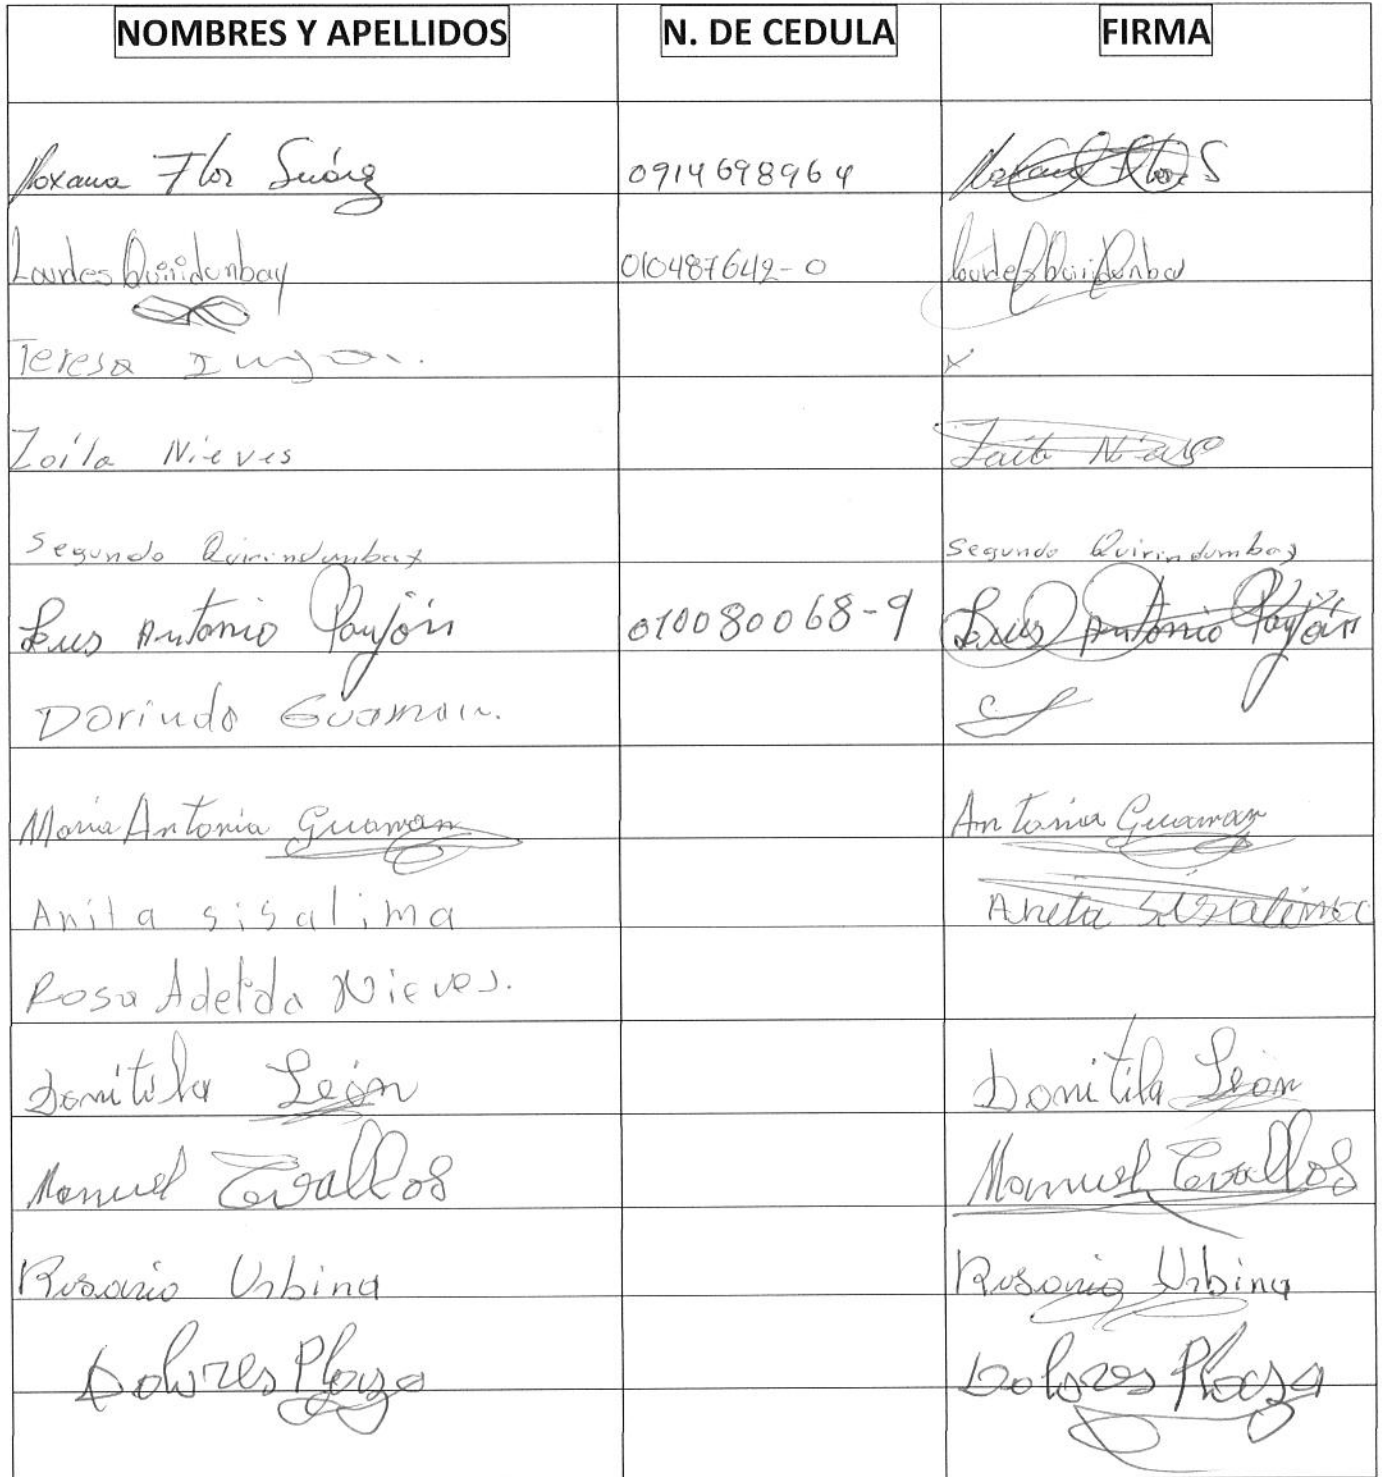 NOMBRES Y APELLIDOS N. DE CEDULA FIRMA
Roxana Flor Suárez 0914698964 Roxana Flor S
Lourdes Quiridunbay 010487642-0 Lourdes Quiridunba
Teresa x
Zoila Nieves
Segundo Quirindumbay Segundo Quirindumbay
Luis Antonio Payjón 010080068-9 Luis Antonio Payjón
Dorindo Guaman.
Maria Antonia Guaman Antonia Guaman
Anita sisalima Aneta Sisalima
Rosa Adelda Nieves.
Domitila León Domitila León
Manuel Cevallos Manuel Cevallos
Rosario Urbina Rosario Urbina
Dolores Plaza Dolores Plaza